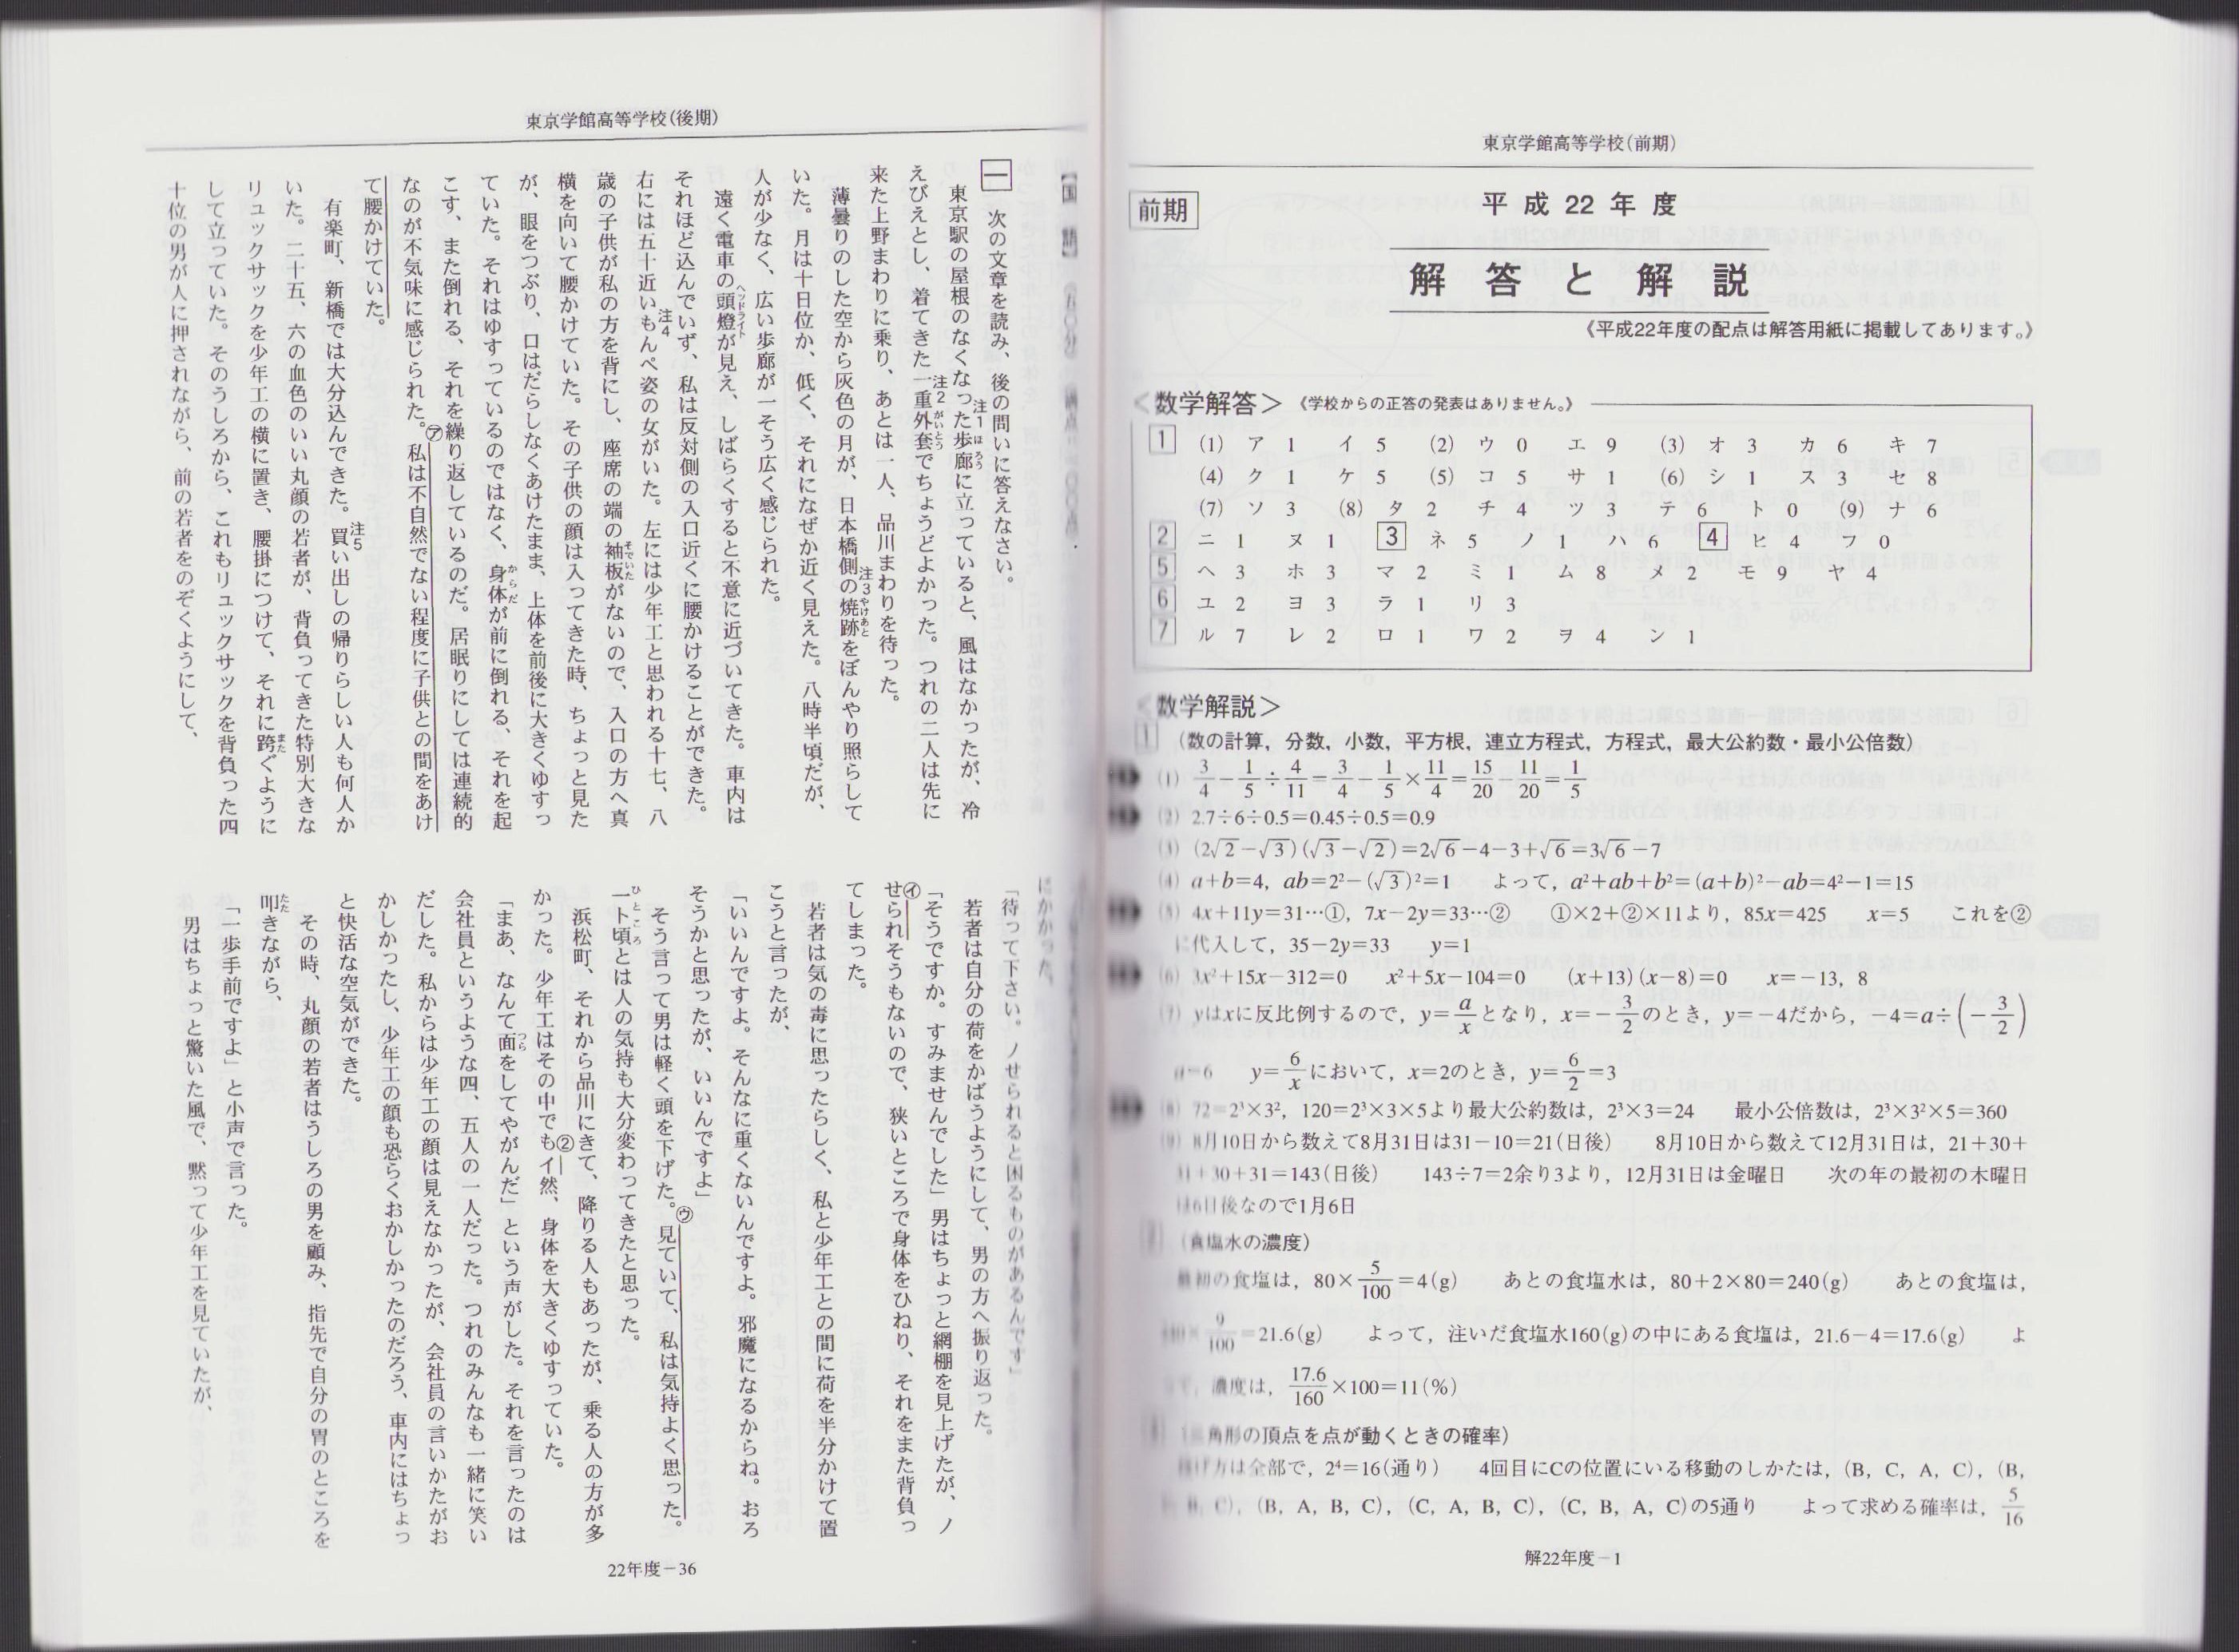 東京学館高等学校(後期)
【国 語】
一 次の文章を読み、後の問いに答えなさい。
東京駅の屋根のなくなった歩廊に立っていると、風はなかったが、冷
えびえとし、着てきた一重外套でちょうどよかった。つれの二人は先に
来た上野まわりに乗り、あとは一人、品川まわりを待った。
薄曇りのした空から灰色の月が、日本橋側の焼跡をぼんやり照らして
いた。月は十日位か、低く、それになぜか近く見えた。八時半頃だが、
人が少なく、広い歩廊が一そう広く感じられた。
遠く電車の頭燈が見え、しばらくすると不意に近づいてきた。車内は
それほど込んでいず、私は反対側の入口近くに腰かけることができた。
右には五十近いもんぺ姿の女がいた。左には少年工と思われる十七、八
歳の子供が私の方を背にし、座席の端の袖板がないので、入口の方へ真
横を向いて腰かけていた。その子供の顔は入ってきた時、ちょっと見た
が、眼をつぶり、口はだらしなくあけたまま、上体を前後に大きくゆすっ
ていた。それはゆすっているのではなく、身体が前に倒れる、それを起
こす、また倒れる、それを繰り返しているのだ。居眠りにしては連続的
なのが不気味に感じられた。㋐私は不自然でない程度に子供との間をあけ
て腰かけていた。
有楽町、新橋では大分込んできた。買い出しの帰りらしい人も何人か
いた。二十五、六の血色のいい丸顔の若者が、背負ってきた特別大きな
リュックサックを少年工の横に置き、腰掛につけて、それに跨ぐように
して立っていた。そのうしろから、これもリュックサックを背負った四
十位の男が人に押されながら、前の若者をのぞくようにして、
「待って下さい。ノせられると困るものがあるんです」
若者は自分の荷をかばうようにして、男の方へ振り返った。
「そうですか。すみませんでした」男はちょっと網棚を見上げたが、ノ
㋑せられそうもないので、狭いところで身体をひねり、それをまた背負っ
てしまった。
若者は気の毒に思ったらしく、私と少年工との間に荷を半分かけて置
こうと言ったが、
「いいんですよ。そんなに重くないんですよ。邪魔になるからね。おろ
そうかと思ったが、いいんですよ」
そう言って男は軽く頭を下げた。㋒見ていて、私は気持よく思った。
一ト頃とは人の気持も大分変わってきたと思った。
浜松町、それから品川にきて、降りる人もあったが、乗る人の方が多
かった。少年工はその中でも②イ然、身体を大きくゆすっていた。
「まあ、なんて面をしてやがんだ」という声がした。それを言ったのは
会社員というような四、五人の一人だった。つれのみんなも一緒に笑い
だした。私からは少年工の顔は見えなかったが、会社員の言いかたがお
かしかったし、少年工の顔も恐らくおかしかったのだろう、車内にはちょっ
と快活な空気ができた。
その時、丸顔の若者はうしろの男を顧み、指先で自分の胃のところを
叩きながら、
「一歩手前ですよ」と小声で言った。
男はちょっと驚いた風で、黙って少年工を見ていたが、
22年度－36
東京学館高等学校(前期)
前期
平成22年度
解答と解説
《平成22年度の配点は解答用紙に掲載してあります。》
＜数学解答＞ 《学校からの正答の発表はありません。》
1 (1) ア 1 イ 5 (2) ウ 0 エ 9 (3) オ 3 カ 6 キ 7
(4) ク 1 ケ 5 (5) コ 5 サ 1 (6) シ 1 ス 3 セ 8
(7) ソ 3 (8) タ 2 チ 4 ツ 3 テ 6 ト 0 (9) ナ 6
2 ニ 1 ヌ 1 3 ネ 5 ノ 1 ハ 6 4 ヒ 4 フ 0
5 ヘ 3 ホ 3 マ 2 ミ 1 ム 8 メ 2 モ 9 ヤ 4
6 ユ 2 ヨ 3 ラ 1 リ 3
7 ル 7 レ 2 ロ 1 ワ 2 ヲ 4 ン 1
＜数学解説＞
1 (数の計算，分数，小数，平方根，連立方程式，方程式，最大公約数・最小公倍数)
(1) 3/4－1/5÷4/11＝3/4－1/5×11/4＝15/20－11/20＝1/5
(2) 2.7÷6÷0.5＝0.45÷0.5＝0.9
(3) (2√2－√3)(√3－√2)＝2√6－4－3＋√6＝3√6－7
(4) a＋b＝4，ab＝2²－(√3)²＝1 よって，a²＋ab＋b²＝(a＋b)²－ab＝4²－1＝15
(5) 4x＋11y＝31…①，7x－2y＝33…② ①×2＋②×11より，85x＝425 x＝5 これを②
に代入して，35－2y＝33 y＝1
(6) 3x²＋15x－312＝0 x²＋5x－104＝0 (x＋13)(x－8)＝0 x＝－13，8
(7) yはxに反比例するので，y＝a/xとなり，x＝－3/2のとき，y＝－4だから，－4＝a÷(－3/2)
a＝6 y＝6/xにおいて，x＝2のとき，y＝6/2＝3
(8) 72＝2³×3²，120＝2³×3×5より最大公約数は，2³×3＝24 最小公倍数は，2³×3²×5＝360
(9) 8月10日から数えて8月31日は31－10＝21(日後) 8月10日から数えて12月31日は，21＋30＋
31＋30＋31＝143(日後) 143÷7＝2余り3より，12月31日は金曜日 次の年の最初の木曜日
は6日後なので1月6日
2 (食塩水の濃度)
最初の食塩は，80×5/100＝4(g) あとの食塩水は，80＋2×80＝240(g) あとの食塩は，
240×9/100＝21.6(g) よって，注いだ食塩水160(g)の中にある食塩は，21.6－4＝17.6(g) よ
って，濃度は，17.6/160×100＝11(%)
3 (三角形の頂点を点が動くときの確率)
投げ方は全部で，2⁴＝16(通り) 4回目にCの位置にいる移動のしかたは，(B，C，A，C)，(B，
B，C)，(B，A，B，C)，(C，A，B，C)，(C，B，A，C)の5通り よって求める確率は，5/16
解22年度－1